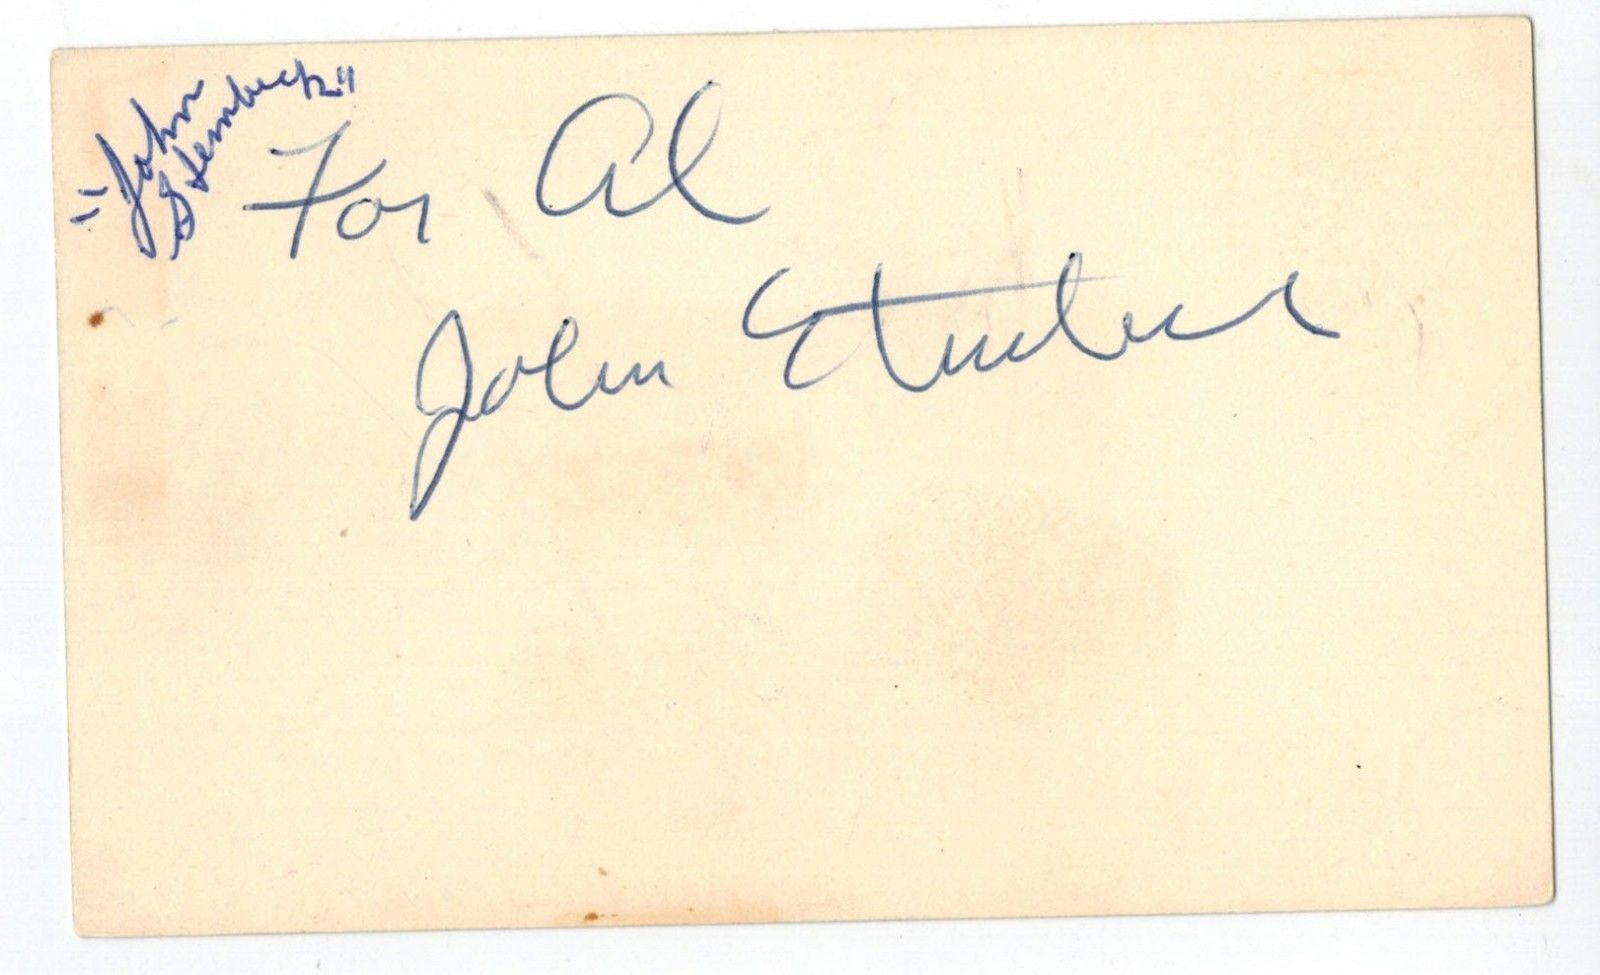 "John
Steinbeck"
For Al
John Steinbeck